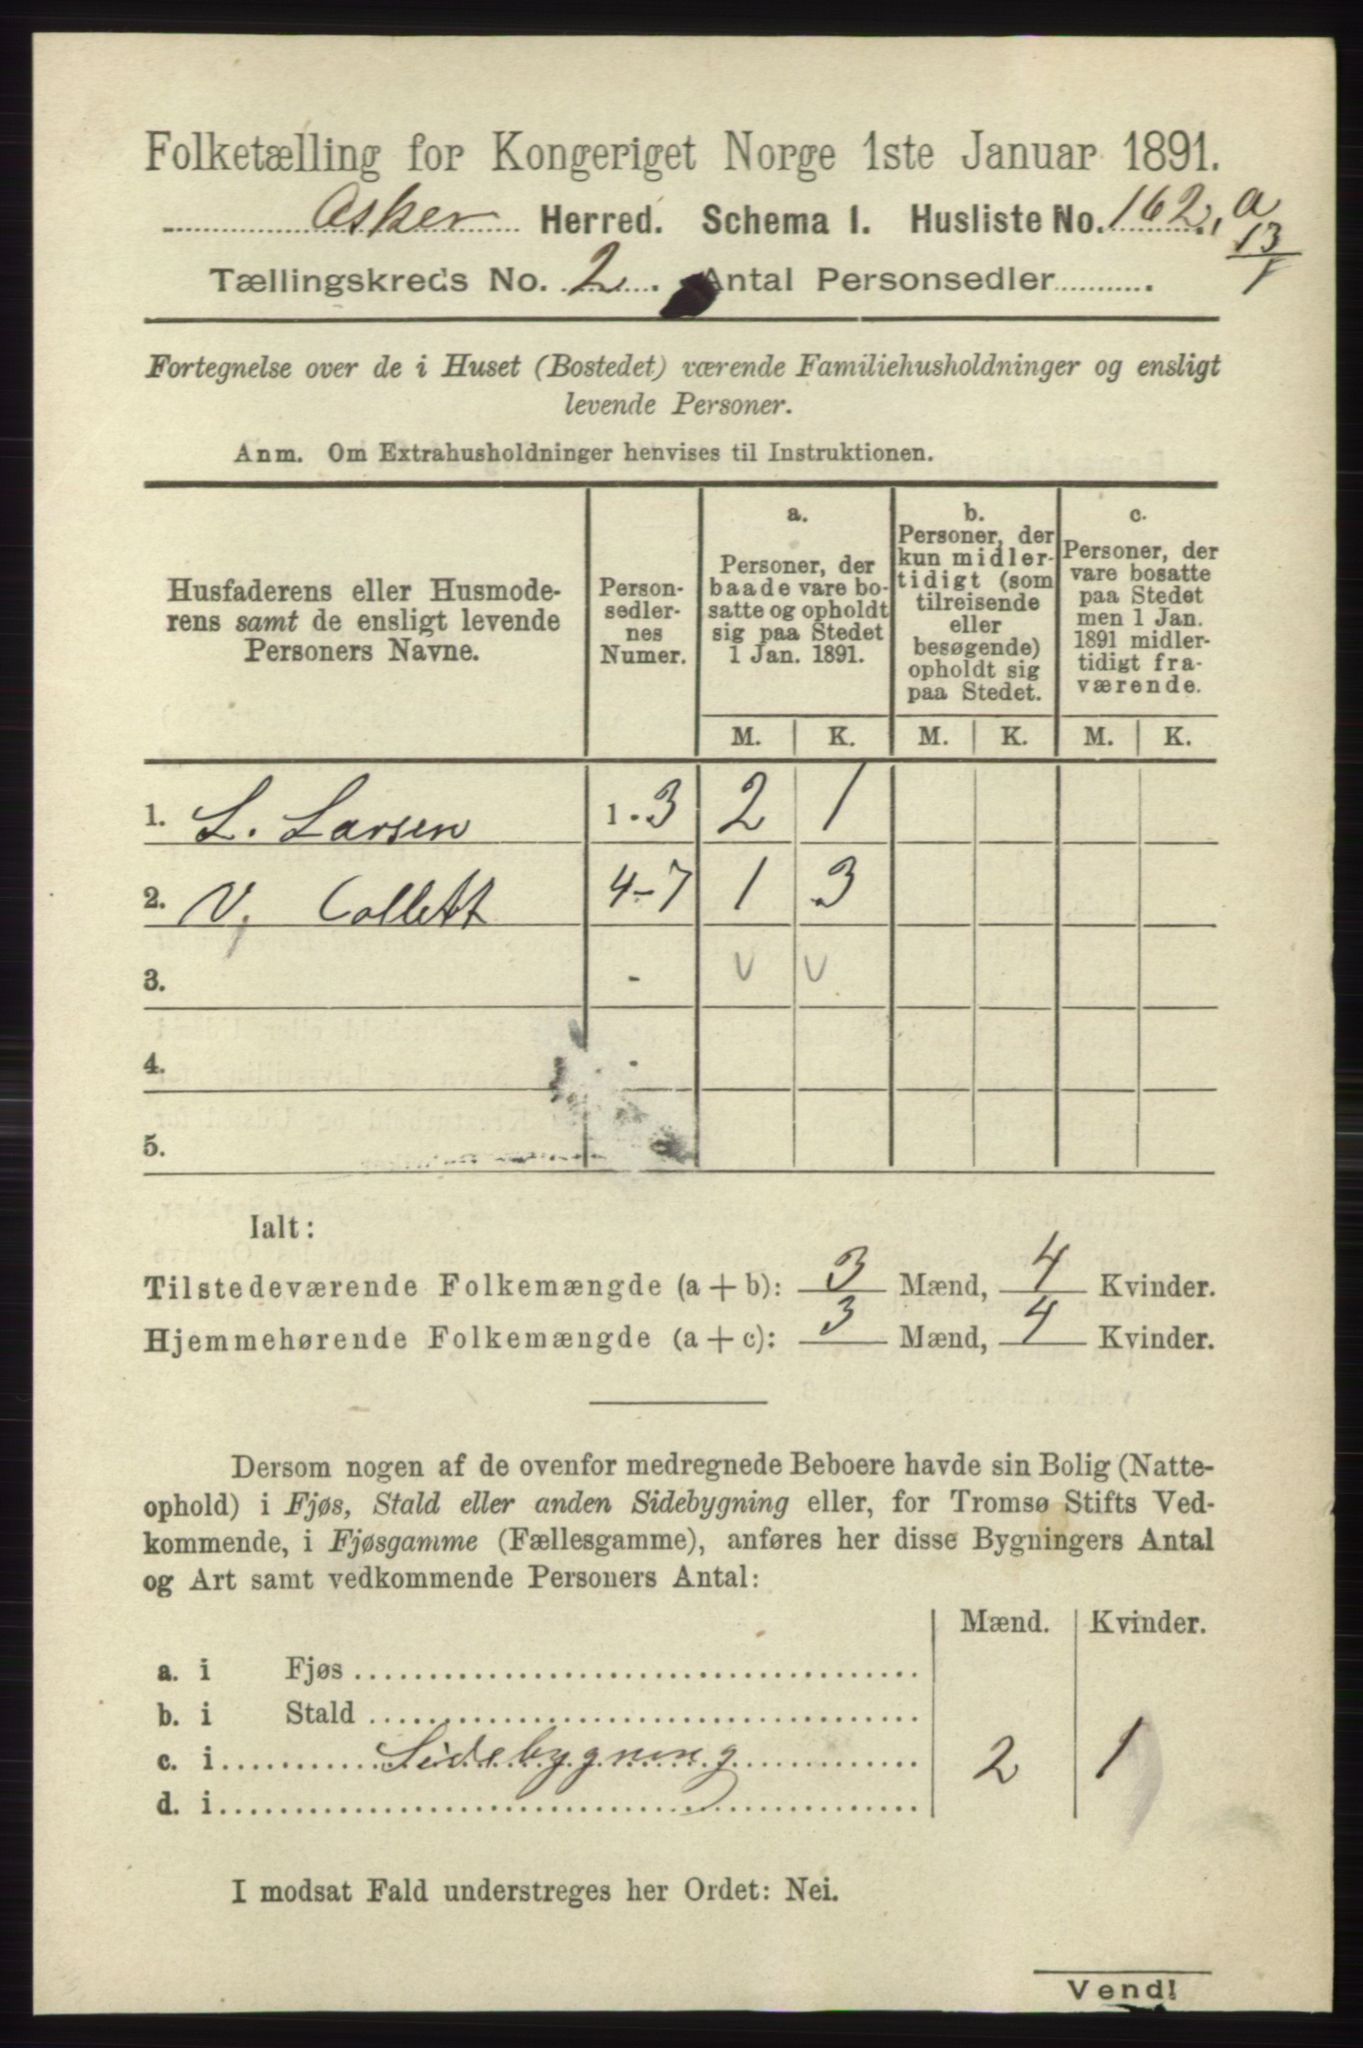 Folketælling for Kongeriget Norge 1ste Januar 1891.
Asker Herred. Schema I. Husliste No. 162, a
13
Tællingskreds No. 2. Antal Personsedler
Fortegnelse over de i Huset (Bostedet) værende Familiehusholdninger og ensligt
levende Personer.
Anm. Om Extrahusholdninger henvises til Instruktionen.
Husfaderens eller Husmode-
rens samt de ensligt levende
Personers Navne.
Person-
sedler-
nes
Numer.
a.
Personer, der
baade vare bo-
satte og opholdt
sig paa Stedet
1 Jan. 1891.
b.
Personer, der
kun midler-
tidigt (som
tilreisende
eller
besøgende)
opholdt sig
paa Stedet.
c.
Personer, der
vare bosatte
paa Stedet
men 1 Jan.
1891 midler-
tidigt fra-
værende.
M. K. M. K. M. K.
1. L. Larsen 1-3 2 1
2. V. Collett 4-7 1 3
3. - v v
4.
5.
Ialt:
Tilstedeværende Folkemængde (a + b): 3 Mænd, 4 Kvinder.
Hjemmehørende Folkemængde (a + c): 3 Mænd, 4 Kvinder.
Dersom nogen af de ovenfor medregnede Beboere havde sin Bolig (Natte-
ophold) i Fjøs, Stald eller anden Sidebygning eller, for Tromsø Stifts Ved-
kommende, i Fjøsgamme (Fællesgamme), anføres her disse Bygningers Antal
og Art samt vedkommende Personers Antal:
Mænd. Kvinder.
a. i Fjøs
b. i Stald
c. i Sidebygning 2 1
d. i
I modsat Fald understreges her Ordet: Nei.
Vend!